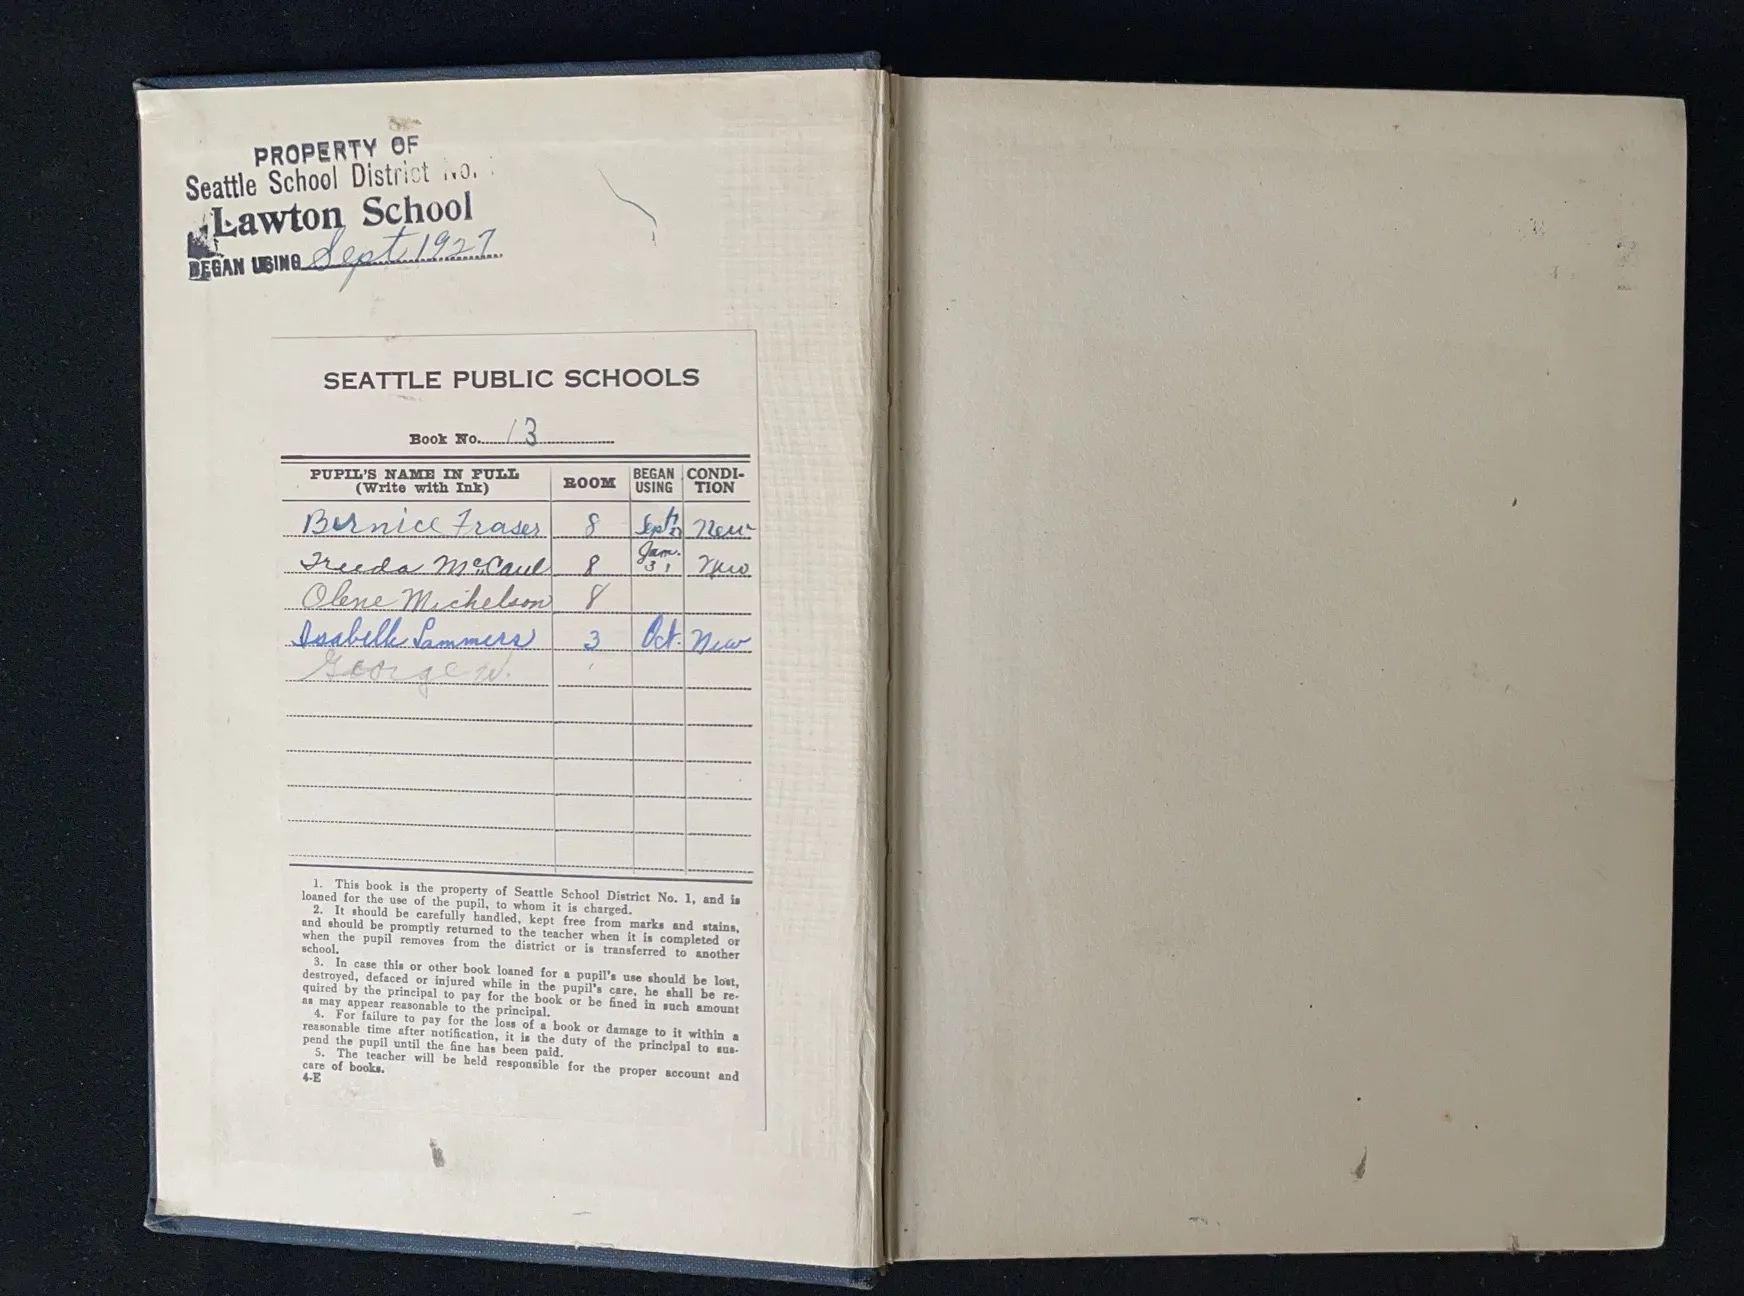 PROPERTY OF
Seattle School District No.
Lawton School
BEGAN USING Sept 1927
SEATTLE PUBLIC SCHOOLS
Book No. 13
PUPIL'S NAME IN FULL
(Write with Ink)
ROOM
BEGAN
USING
CONDI-
TION
Bernice Fraser 8 Sept New
Freeda McCaul 8 Jan. 31 New
Olene Michelson 8
Isabelle Sammers 3 Oct. New
George W.
1. This book is the property of Seattle School District No. 1, and is
loaned for the use of the pupil, to whom it is charged.
2. It should be carefully handled, kept free from marks and stains,
and should be promptly returned to the teacher when it is completed or
when the pupil removes from the district or is transferred to another
school.
3. In case this or other book loaned for a pupil's use should be lost,
destroyed, defaced or injured while in the pupil's care, he shall be re-
quired by the principal to pay for the book or be fined in such amount
as may appear reasonable to the principal.
4. For failure to pay for the loss of a book or damage to it within a
reasonable time after notification, it is the duty of the principal to sus-
pend the pupil until the fine has been paid.
5. The teacher will be held responsible for the proper account and
care of books.
4-E